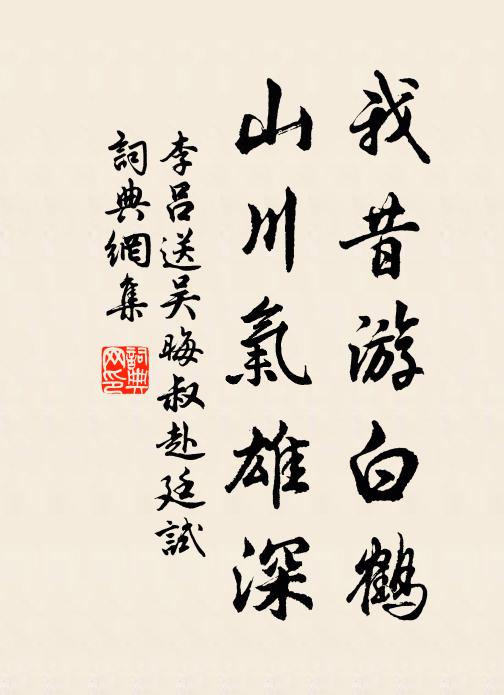 我昔游白鶴
山川氣雄深
李呂送吴晦叔赴廷試
詞典網集
詞典网印